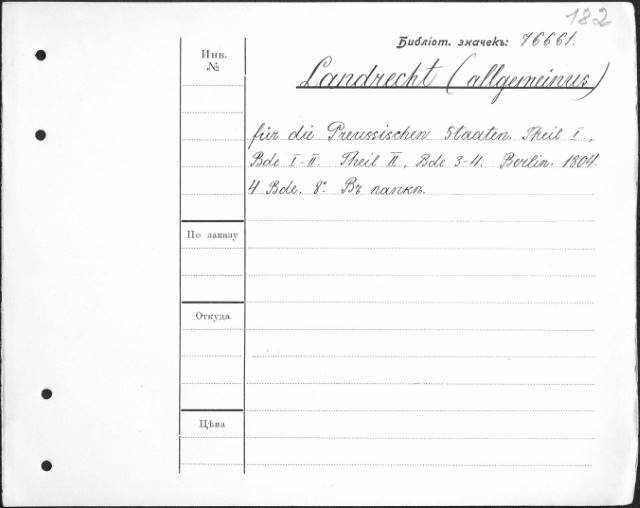 182
Библіот. значекъ: 76661.
Инв.
№
Landrecht (allgemeinus)
für die Preussischen Staaten. Theil I.,
Bde I-II. Theil II, Bde 3-4. Berlin. 1804.
4 Bde. 8°. Въ папкѣ.
По заказу
Откуда
Цѣна